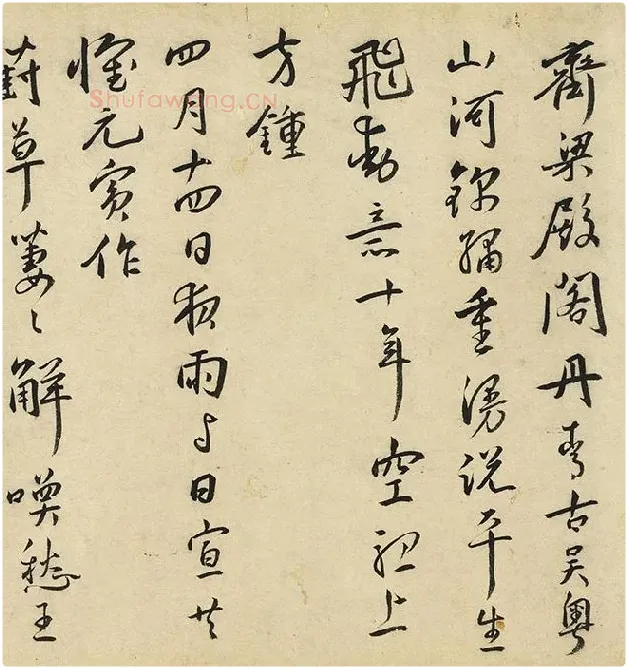 齊梁殿閣丹青古吳粵
山河錦繡重漫說平生
飛動意十年空上
方鍾
四月十四日夜雨与日宣共
懷元賓作
對草萋〻解喚愁王
Shufawang.CN